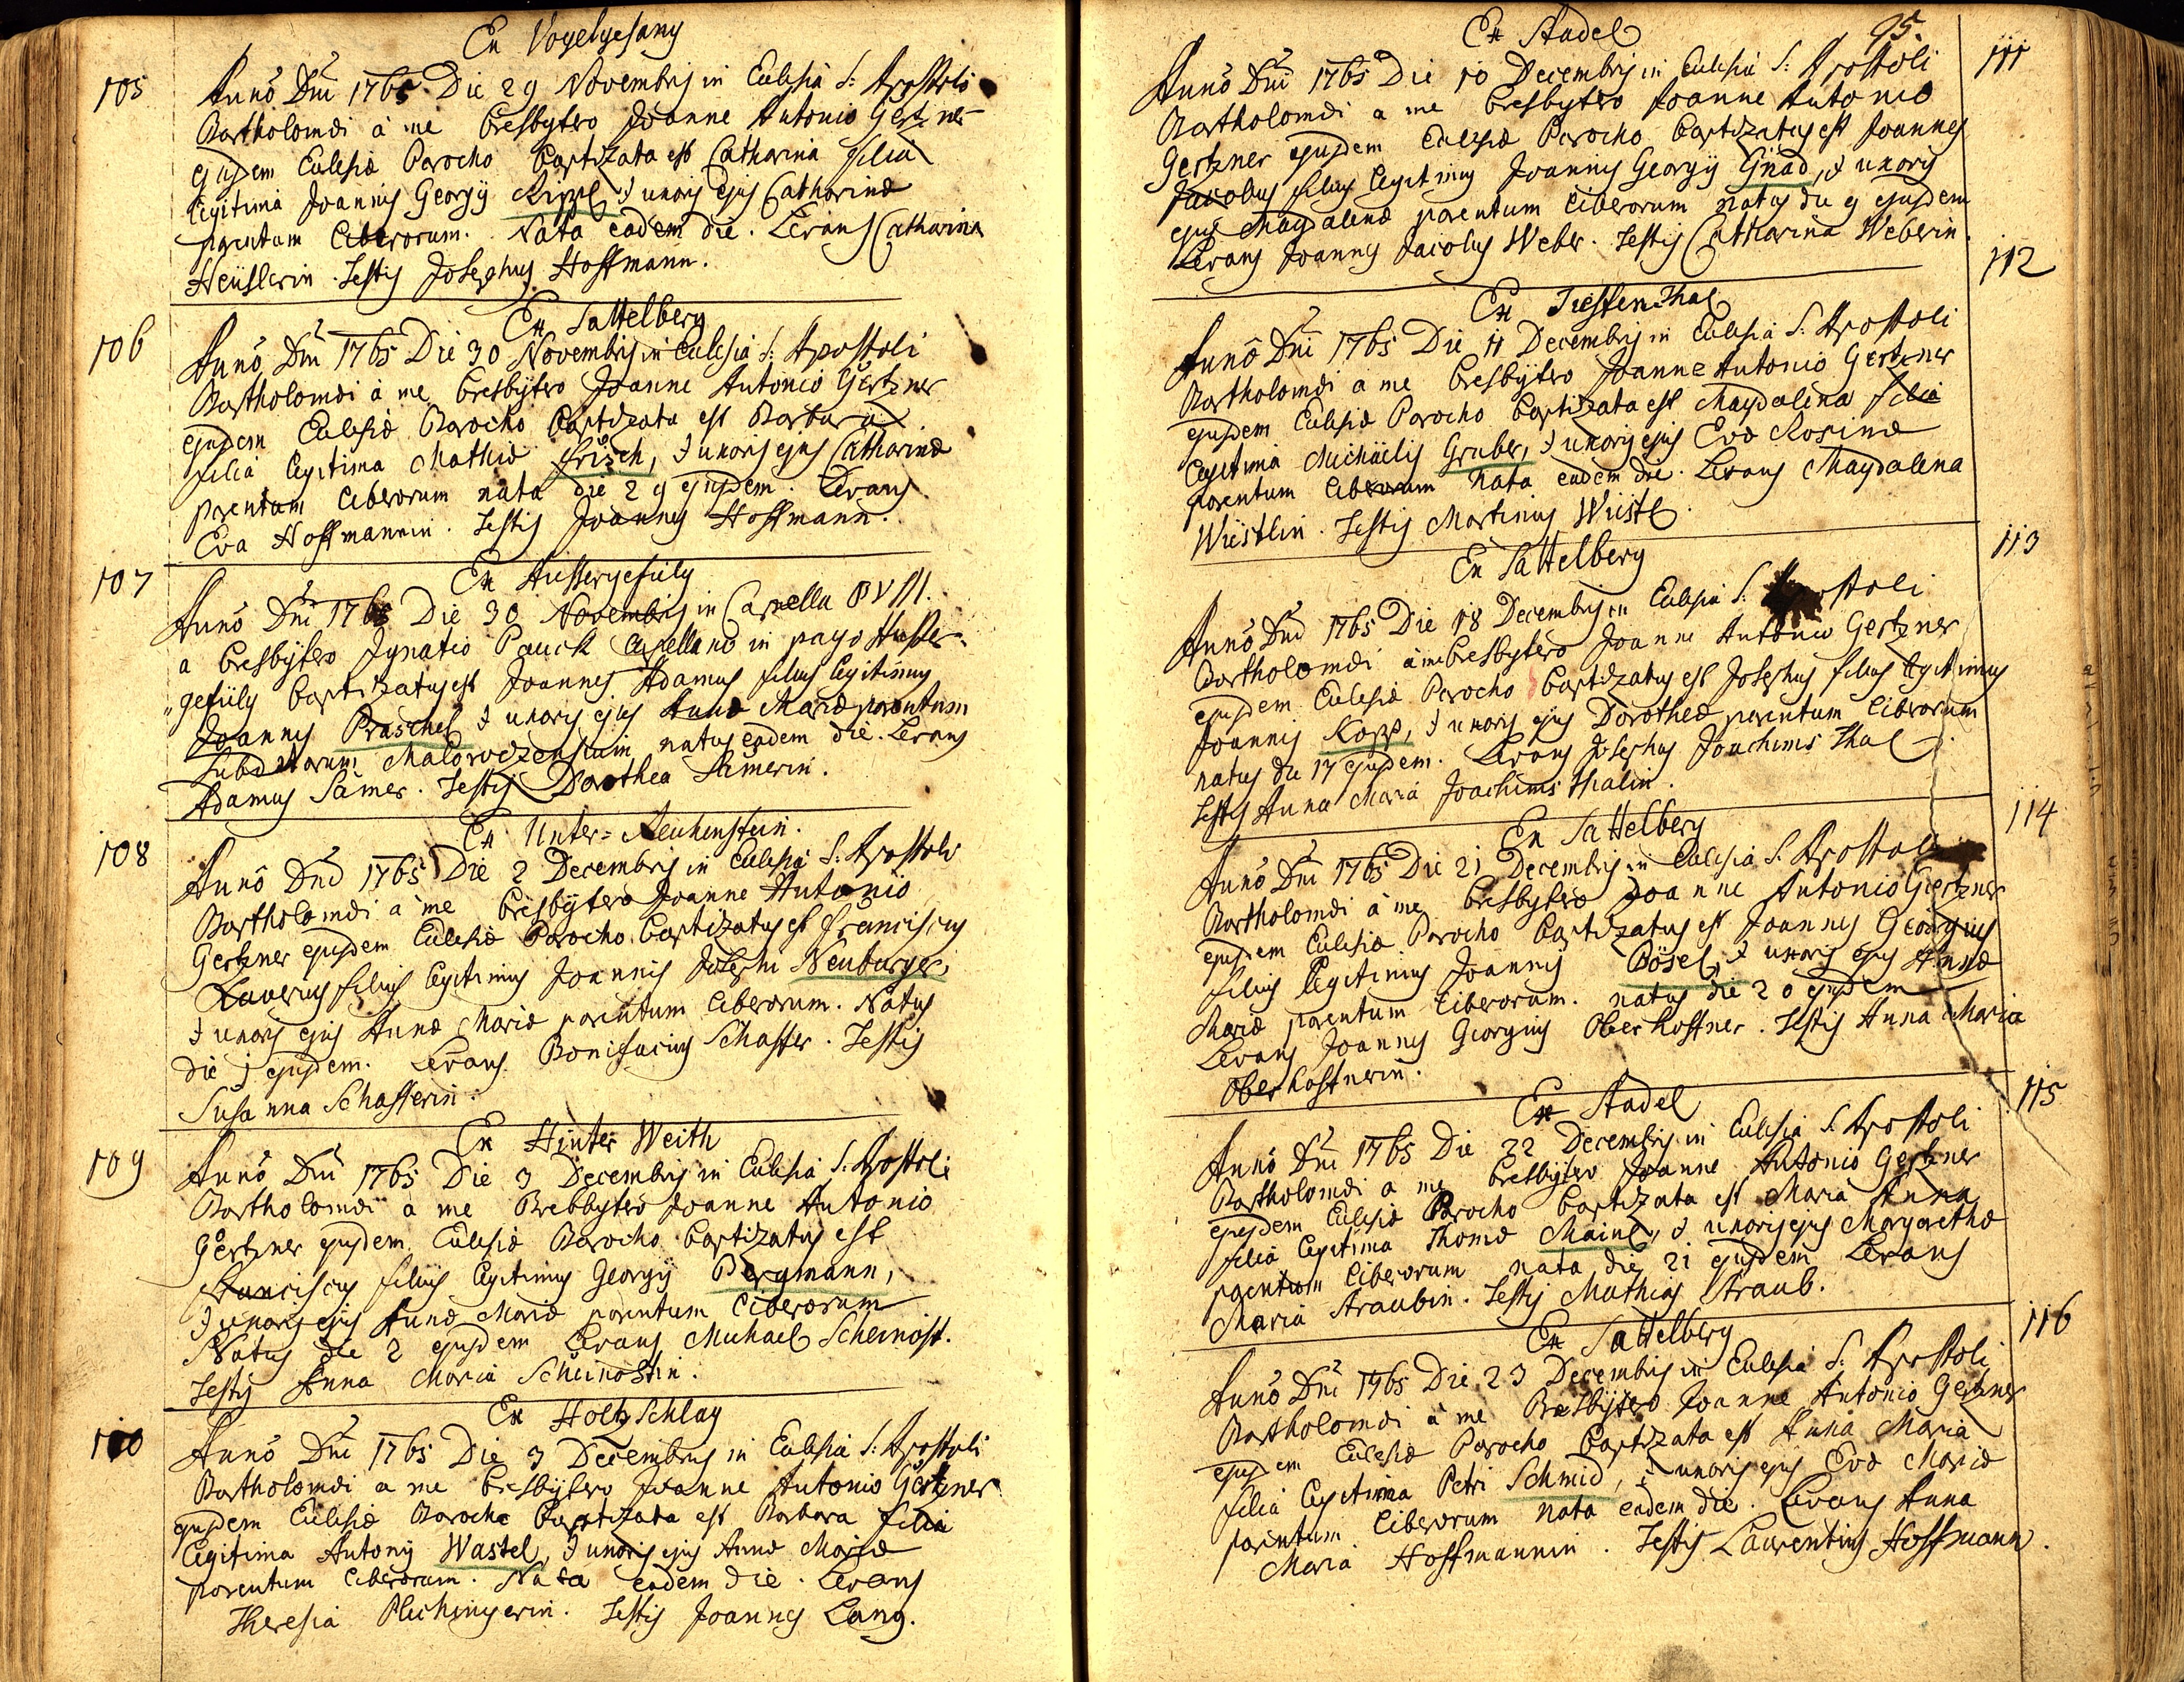 Ex Vogelgesang
105
Anno Dni 1765 Die 29 Novembris in Ecclesia S: Apostoli
Bartholomæi à me Presbytero Joanne Antonio Gertzner
ejusdem Ecclesiæ Parocho baptizata est Catharina filia
legitima Joannis Georgij Rippl, & uxoris ejus Catharinæ
parentum liberorum. Nata eadem die. Levans Catharina
Heuslerin. Testis Josephus Hoffmann.
Ex Sattelberg
106
Anno Dni 1765 Die 30 Novembris in Ecclesia S: Apostoli
Bartholomæi à me Presbytero Joanne Antonio Gertzner
ejusdem Ecclesiæ Parocho baptizata est Barbara
filia legitima Mathiæ Frisch, & uxoris ejus Catharinæ
parentum liberorum nata die 29 ejusdem. Levans
Eva Hoffmannin. Testis Joannes Hoffmann.
Ex Aussergefilg
107
Anno Dni 1765 Die 30 Novembris in Capella BVM.
a Presbytero Ignatio Pauck Capellano in pago Ausser-
gefilg baptizatus est Joannes Adamus filius legitimus
Joannis Praschel & uxoris ejus Annæ Mariæ parentum
subditorum natus eadem die. Levans
Adamus Samer. Testis Dorothea Samerin.
Ex Unter= Reichenstein.
108
Anno Dni 1765 Die 2 Decembris in Ecclesia S: Apostoli
Bartholomæi a me Presbytero Joanne Antonio
Gertzner ejusdem Ecclesiæ Parocho baptizatus est Franciscus
Xaverius filius legitimus Joannis Josephi Neuburger,
& uxoris ejus Annæ Mariæ parentum liberorum. Natus
die 1 ejusdem. Levans Bonifacius Schaffer. Testis
Susanna Schafferin.
Ex Hinter Weith
109
Anno Dni 1765 Die 3 Decembris in Ecclesia S: Apostoli
Bartholomæi a me Presbytero Joanne Antonio
Gertzner ejusdem Ecclesiæ Parocho baptizatus est
Franciscus filius legitimus Georgij Bergmann,
& uxoris ejus Annæ Mariæ parentum liberorum
Natus die 2 ejusdem Levans Michael Scheinost.
Testis Anna Maria Scheinostin.
Ex Holtzschlag
110
Anno Dni 1765 Die 3 Decembris in Ecclesia S: Apostoli
Bartholomæi a me Presbytero Joanne Antonio Gertzner
ejusdem Ecclesiæ Parocho baptizata est Barbara filia
legitima Antonij Wastel, & uxoris ejus Annæ Mariæ
parentum liberorum. Nata eadem die. Levans
Theresia Plechingerin. Testis Joannes Lang.
95.
Ex Stadel
111
Anno Dni 1765 Die 10 Decembris in Ecclesia S: Apostoli
Bartholomæi a me Presbytero Joanne Antonio
Gertzner ejusdem Ecclesiæ Parocho baptizatus est Joannes
Jacobus filius legitimus Joannis Georgij Gnad, & uxoris
ejus Magdalenæ parentum liberorum natus die 9 ejusdem
Levans Joannes Jacobus Weber. Testis Catharina Weberin
Ex Tieffenthal
112
Anno Dni 1765 Die 11 Decembris in Ecclesia S: Apostoli
Bartholomæi a me Presbytero Joanne Antonio Gertzner
ejusdem Ecclesiæ Parocho baptizata est Magdalena filia
legitima Michäelis Gruber, & uxoris ejus Evæ Rosinæ
parentum liberorum nata eadem die. Levans Magdalena
Wiestlin. Testis Martinus Wiestl.
Ex Sattelberg
113
Anno Dni 1765 Die 18 Decembris in Ecclesia S: Apostoli
Bartholomæi à me Presbytero Joanne Antonio Gertzner
ejusdem Ecclesiæ Parocho baptizatus est Josephus filius legitimus
Joannis Kopp, & uxoris ejus Dorotheæ parentum liberorum
natus die 17 ejusdem. Levans Josephus Joachims Thal.
Testis Anna Maria Joachimsthalin.
Ex Sattelberg
114
Anno Dni 1765 Die 21 Decembris in Ecclesia S. Apostoli
Bartholomæi à me Presbytero Joanne Antonio Gertzner
ejusdem Ecclesiæ Parocho baptizatus est Joannes Georgius
filius legitimus Joannis Bösel, & uxoris ejus Annæ
Mariæ parentum liberorum. natus die 20 ejusdem
Levans Joannes Georgius Oberkoffner. Testis Anna Maria
Oberkoffnerin.
Ex Stadel
115
Anno Dni 1765 Die 22 Decembris in Ecclesia S. Apostoli
Bartholomæi a me Presbytero Joanne Antonio Gertzner
ejusdem Ecclesiæ Parocho baptizata est Maria Anna
filia legitima Thomæ Mainl, & uxoris ejus Margarethæ
parentum liberorum nata die 21 ejusdem Levans
Maria Straubin. Testis Mathias Straub.
Ex Sattelberg
116
Anno Dni 1765 Die 23 Decembris in Ecclesia S: Apostoli
Bartholomæi à me Presbytero Joanne Antonio Gertzner
ejusdem Ecclesiæ Parocho baptizata est Anna Maria
filia legitima Petri Schmid, & uxoris ejus Evæ Mariæ
parentum liberorum nata eadem die. Levans Anna
Maria Hoffmannin. Testis Laurentius Hoffmann.